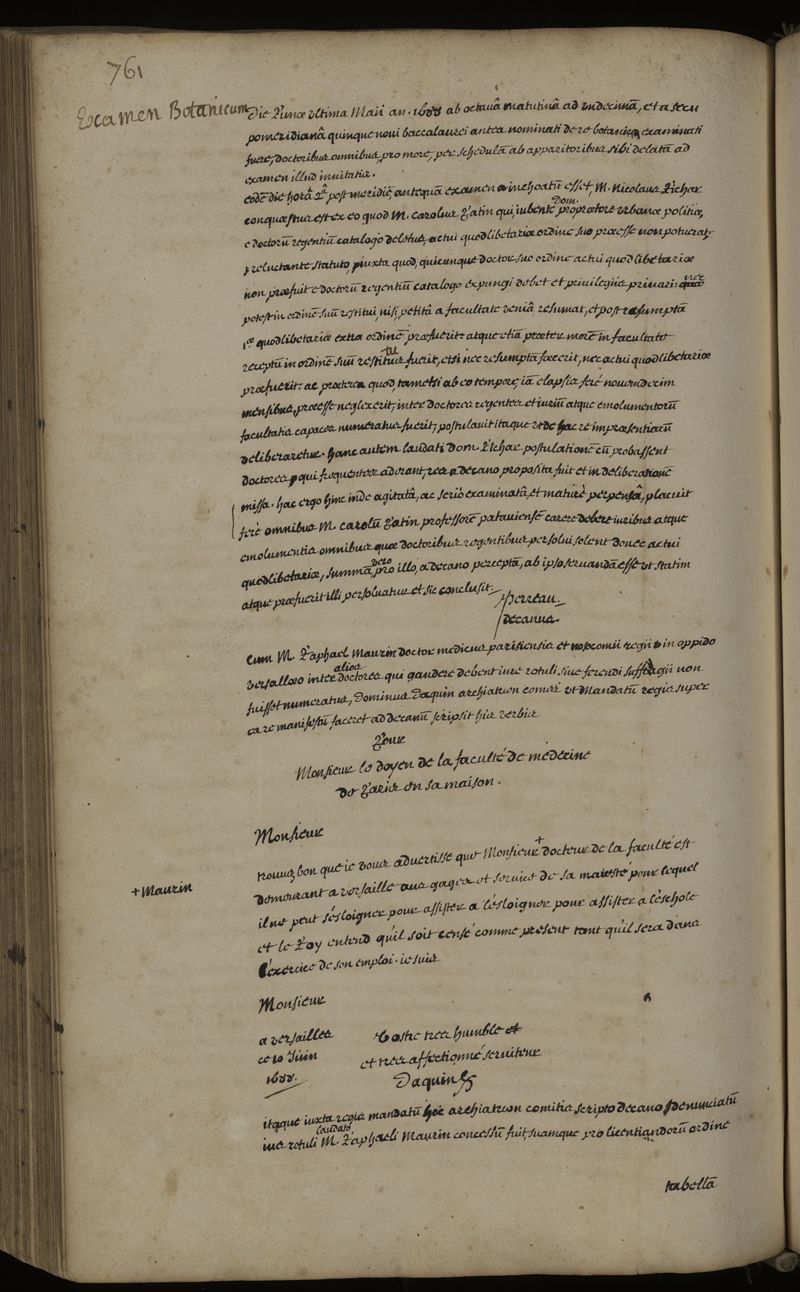 761
Examen Botanicum
Die Lunæ ultima Maii an. 1688 ab octavâ matutinâ ad undecimā, et a secū
pomeridianâ quinque noui baccalaurei antea nominati de re botanica examinati
fuere, doctoribus omnibus, pro more, per schedulā ab apparitoribus sibi delatā ad
examen illud inuitatis.
eodē die horâ 2â post meridiē, antequā examen inchoatū esset, M. Nicolaus Lienar
conquæstus est ex eo quod M. carolus Patin qui, iubente Dom. proprætore urbanæ politiæ,
e doctorū regentiū catalogo deletus, actui quodlibetariæ ordine suo præesse non potuerat,
reluctante statuto iuxta quod, quicunque doctor suo ordine actui quodlibetariæ
non præfuit e doctorū regentiū catalogo expungi debet et priuilegiis priuari: nec
potest in ordinē suū restitui, nisi petitâ a facultate veniâ resumat, et post resumptā
1æ quodlibetariæ extra ordinē præfuerit: atque etiā præter morē in facultate
receptū in ordinē suū restitutus fuerit, etsi nec resumptā fecerit, nec actui quodlibetariæ
præfuerit: ac præterea quod, tametsi ab eo tempore, iā elapsis feré nouendecim
mensibus, præesse neglexerit, inter doctores regentes et iuriū atque emolumentorū
facultatis capaces numeratus fuerit; postulauit itaque ut de hac re impræsentiarū
deliberaretur. hanc autem laudati dom. Lienar postulationē cū probassent
doctores qui frequentes aderant, res a decano proposita fuit et in deliberationē
missa. hac ergo hinc inde agitatâ, ac seriò examinatâ, et maturè perpensâ, placuit
ferè omnibus M. carolū Patin professorē patauiensē carere debere iuribus atque
emolumentis omnibus quæ doctoribus regentibus persolui solent donec actui
quodlibetariæ, summā vero pro illo, a decano perceptā, ab ipso seruandā esse ut statim
atque præfuerit illi persoluatur et sic conclusit.
Perreau.
decanus.
Cum M. Raphael Maurin doctor medicus parisiensis et nosocomii regii in oppido
versalleo inter alios doctores qui gaudere debent iure rotuli siue ferendi suffragii non
fuisset numeratus, Dominus Daquin archiatrωn comes ut mandatū regis super
ea re manifestū faceret ad decanū scripsit his verbis
Pour
Monsieur le doyen de la faculté de médecine
de Paris en sa maison.
Monsieur
trouués bon que ie vous aduertisse que Monsieur + docteur de la faculté est
+ Maurin
demeurant a versaille aux gages et seruice de sa maiesté pour lequel
il ne peut s'esloigner pour assister a l'esloigner pour assister a l'eschole
et le Roy entend qu'il soit censé comme present tant qu'il sera dans
l'exercice de son emploi. ie suis
Monsieur
a versailles
ce 10 Juin
1688.
Vostre tres humble et
et tres affectionné seruiteur
Daquin
itaque iuxta regis mandatū hoc archiatrωn comitis scripto decano denunciatū
ius rotuli laudato M. Raphaeli Maurin concessū fuit, suamque pro licentiandorū ordine
tabellā